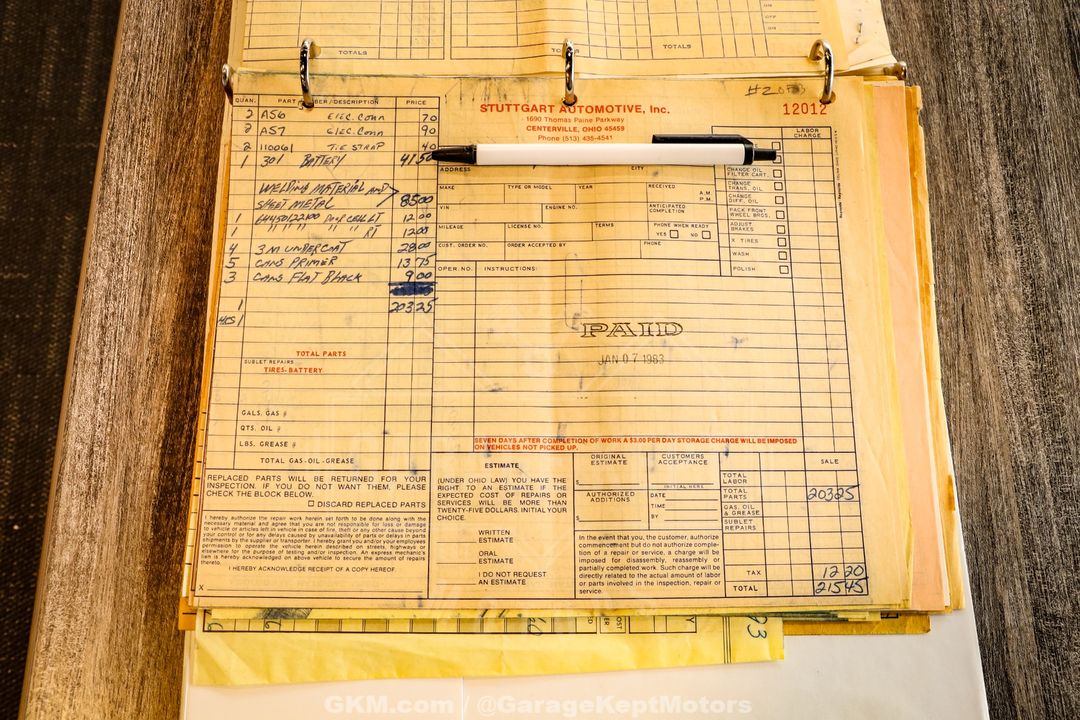 TOTALS
TOTALS
ON
OFF
ON
#2053
QUAN. PART NUMBER/DESCRIPTION PRICE
2 A56 ELEC. CONN 70
2 A57 ELEC. CONN 90
2 110061 TIE STRAP 40
1 301 BATTERY 41 50
WELDING MATERIAL AND
SHEET METAL 85 00
1 DOOR CELL LT 12 00
1 " " " " RT 12 00
4 3M UNDERCOAT 28 00
5 CANS PRIMER 13 75
3 CANS FLAT BLACK 9 00
1 203 25
1
TOTAL PARTS
SUBLET REPAIRS
TIRES-BATTERY
GALS. GAS @
QTS. OIL @
LBS. GREASE @
TOTAL GAS-OIL-GREASE
REPLACED PARTS WILL BE RETURNED FOR YOUR
INSPECTION. IF YOU DO NOT WANT THEM, PLEASE
CHECK THE BLOCK BELOW.
DISCARD REPLACED PARTS
I hereby authorize the repair work herein set forth to be done along with the
necessary material and agree that you are not responsible for loss or damage
to vehicle or articles left in vehicle in case of fire, theft or any other cause beyond
your control or for any delays caused by unavailability of parts or delays in parts
shipments by the supplier or transporter. I hereby grant you and/or your employees
permission to operate the vehicle herein described on streets, highways or
elsewhere for the purpose of testing and/or inspection. An express mechanic's
lien is hereby acknowledged on above vehicle to secure the amount of repairs
thereto.
I HEREBY ACKNOWLEDGE RECEIPT OF A COPY HEREOF.
X
STUTTGART AUTOMOTIVE, Inc.
1690 Thomas Paine Parkway
CENTERVILLE, OHIO 45459
Phone (513) 435-4541
12012
LABOR
CHARGE
ADDRESS CITY
MAKE TYPE OR MODEL YEAR RECEIVED A.M.
P.M.
VIN ENGINE NO. ANTICIPATED
COMPLETION
MILEAGE LICENSE NO. TERMS PHONE WHEN READY
YES NO
CUST. ORDER NO. ORDER ACCEPTED BY PHONE
CHANGE OIL
FILTER CART.
CHANGE
TRANS. OIL
CHANGE
DIFF. OIL
PACK FRONT
WHEEL BRGS.
ADJUST
BRAKES
X TIRES
WASH
POLISH
OPER. NO. INSTRUCTIONS:
PAID
JAN 07 1983
SEVEN DAYS AFTER COMPLETION OF WORK A $3.00 PER DAY STORAGE CHARGE WILL BE IMPOSED
ON VEHICLES NOT PICKED UP.
ESTIMATE
(UNDER OHIO LAW) YOU HAVE THE
RIGHT TO AN ESTIMATE IF THE
EXPECTED COST OF REPAIRS OR
SERVICES WILL BE MORE THAN
TWENTY-FIVE DOLLARS. INITIAL YOUR
CHOICE.
WRITTEN
ESTIMATE
ORAL
ESTIMATE
I DO NOT REQUEST
AN ESTIMATE
ORIGINAL
ESTIMATE
$
AUTHORIZED
ADDITIONS
$
CUSTOMERS
ACCEPTANCE
INITIAL HERE
DATE
TIME
BY
In the event that you, the customer, authorize
commencement but do not authorize comple-
tion of a repair or service, a charge will be
imposed for disassembly, reassembly or
partially completed work. Such charge will be
directly related to the actual amount of labor
or parts involved in the inspection, repair or
service.
SALE
TOTAL
LABOR
TOTAL
PARTS 203 25
GAS, OIL
& GREASE
SUBLET
REPAIRS
TAX 12 20
TOTAL 215 45
93
GKM.com / @GarageKeptMotors